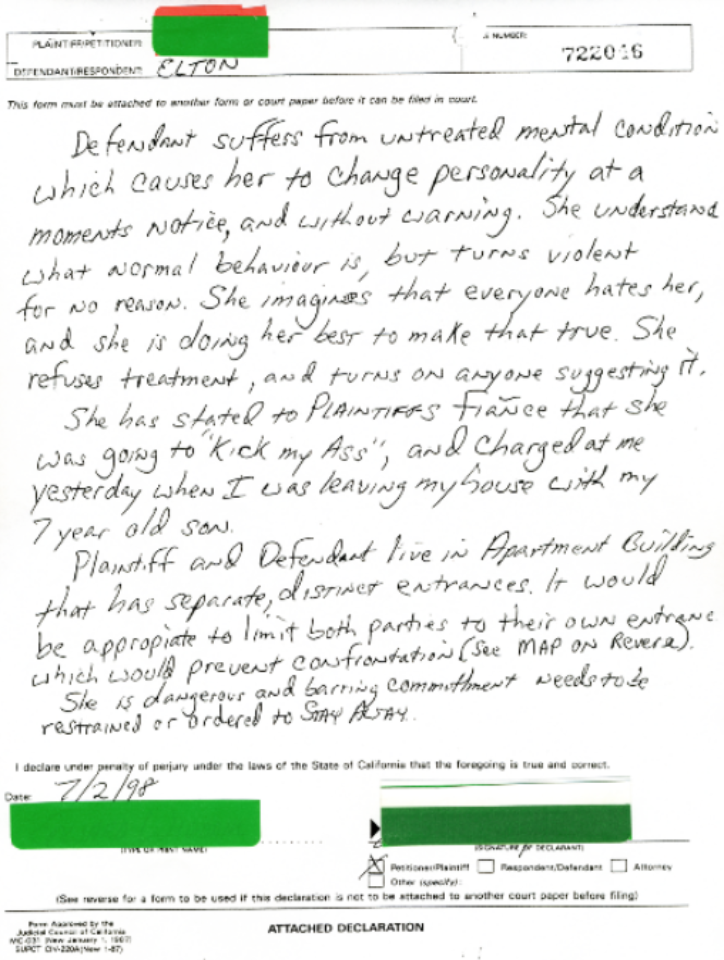 PLAINTIFF/PETITIONER:
NUMBER:
722046
DEFENDANT/RESPONDENT: ELTON
This form must be attached to another form or court paper before it can be filed in court.
Defendant suffers from untreated mental condition
which causes her to change personality at a
moments notice, and without warning. She understand
what normal behaviour is, but turns violent
for no reason. She imagines that everyone hates her,
and she is doing her best to make that true. She
refuses treatment, and turns on anyone suggesting it.
She has stated to PLAINTIFFS Fiañce that she
was going to "Kick my Ass", and charged at me
yesterday when I was leaving my house with my
7 year old son.
Plaintiff and Defendant live in Apartment Building
that has separate, distinct entrances. It would
be appropiate to limit both parties to their own entranc
which would prevent confrontation (See MAP ON Reverse).
She is dangerous and barring commitment needs to be
restrained or ordered to STAY AWAY.
I declare under penalty of perjury under the laws of the State of California that the foregoing is true and correct.
Date: 7/2/98
(TYPE OR PRINT NAME)
(SIGNATURE OF DECLARANT)
X Petitioner/Plaintiff Respondent/Defendant Attorney
Other (specify):
(See reverse for a form to be used if this declaration is not to be attached to another court paper before filing)
Form Approved by the
Judicial Council of California
MC-031 (New January 1, 1987)
SUPCT CIV-220A (New 1-87)
ATTACHED DECLARATION